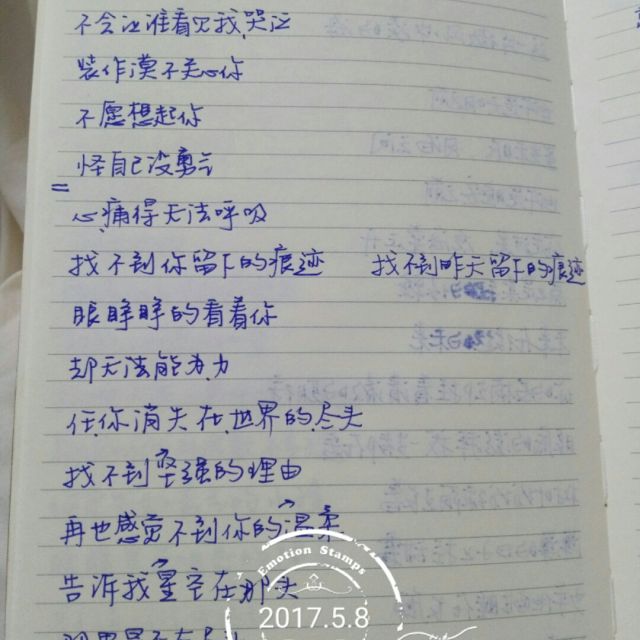 不会让谁看见我哭泣
装作漠不关心你
不愿想起你
怪自己没勇气
=
心痛得无法呼吸
找不到你留下的痕迹 找不到昨天留下的痕迹
眼睁睁的看着你
却无法能为力
任你消失在世界的尽头
找不到坚强的理由
再也感觉不到你的温柔
告诉我星空在那头
Emotion Stamps
2017.5.8